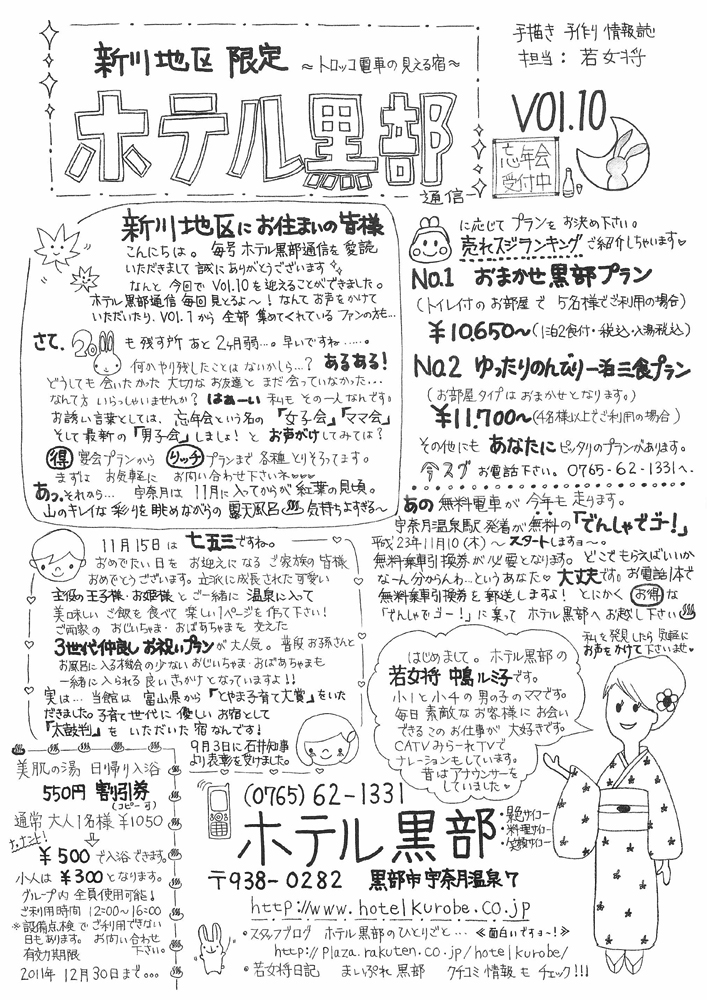 新川地区 限定
～トロッコ電車の見える宿～
ホテル黒部
通信
手描き 手作り 情報誌!
担当：若女将
VOl.10
忘年会
受付中
新川地区にお住まいの皆様
こんにちは。毎号 ホテル黒部通信を愛読
いただきまして 誠にありがとうございます
なんと 今回で Vol.10を迎えることができました。
ホテル黒部通信 毎回見とるよ～！なんてお声をかけて
いただいたり、VOl.1から 全部 集めてくれている ファンの方も…
さて、20 も残す所 あと2ヶ月弱…。早いですね……。
何かやり残したことはないかしら…？ あるある!
どうしても 会いたかった 大切な お友達と まだ会っていなかった…
なんて方 いらっしゃいませんか？ はぁーい 私も その一人なんです。
お誘い言葉としては、忘年会という名の「女子会」「ママ会」
そして最新の「男子会」しましょ！と お声がけしてみては？
得 宴会プランから リッチプランまで 各種とりそろってます。
まずは お気軽に お問い合わせ下さいネ♥♥♥
あっ、それから… 宇奈月は 11月に入ってからが 紅葉の見頃。
山のキレイな 彩りを眺めながらの 露天風呂♨ 気持ちよすぎる～
に応じて プランを お決め下さい。
売れスジランキング ご紹介しちゃいます♥
No.1 おまかせ黒部プラン
(トイレ付のお部屋で 5名様でご利用の場合)
￥10.650～(1泊2食付・税込・入湯税込)
No.2 ゆったりのんびり一泊三食プラン
(お部屋タイプは おまかせとなります。)
￥11.700～(4名様以上でご利用の場合)
その他にも あなたにピッタリのプランがあります。
今スグ お電話下さい。0765-62-1331へ.
あの 無料電車が 今年も 走ります。
宇奈月温泉駅 発着が 無料の「でんしゃでゴー!」
平成23年11月10(木)～スタートしますョ～。
無料乗車引換券が必要となります。どこでもらえばいいか
な～ん分からんわ…というあなた♥ 大丈夫です。お電話1本で
無料乗車引換券を郵送しますよ！とにかく お得な
「でんしゃでゴー!」に乗って ホテル黒部へ お越し下さい♨
11月15日は 七五三ですね。
おめでたい日を お迎えになる ご家族の皆様
おめでとうございます。立派に成長された可愛い
主役の王子様・お姫様と ご一緒に 温泉に入って
美味しい ご飯を 食べて 楽しい1ページを作って下さい！
ご両家の おじいちゃま・おばあちゃまを 交えた
3世代仲良し お祝いプランが 大人気。普段お孫さんと
お風呂に入る機会の少ない おじいちゃま・おばあちゃまも
一緒に入られる 良いきかけ となっていますよ!!
実は… 当館は 富山県から「とやま子育て大賞」をいた
だきました。子育て世代に 優しい お宿として
「太鼓判」を いただいた 宿なんです！
9月3日に 石井知事
より表彰を受けました。
私を発見したら 気軽に
お声をかけて下さいませ♥
はじめまして。ホテル黒部の
若女将 中島ルミ子です。
小1と小4の男の子のママです。
毎日 素敵な お客様に お会い
できる このお仕事が 大好きです。
CATV みらーれTVで
ナレーションもしています。
昔は アナウンサーを
していました♥
美肌の湯 日帰り入浴
550円 割引券
(コピー可)
通常 大人1名様 ￥1050
￥500で入浴できます。
小人は ￥300となります。
グループ内 全員使用可能!
ご利用時間 12:00～16:00
※設備点検で ご利用できない
日もあります。お問い合わせ
下さい。
有効期限
2011年 12月30日まで…
(0765)62-1331
ホテル黒部
・景色サイコー
・料理サイコー
・笑顔サイコー
〒938-0282 黒部市宇奈月温泉7
http://www.hotelkurobe.co.jp
・スタッフブログ ホテル黒部のひとりごと… ≪面白いですョ～!≫
http://plaza.rakuten.co.jp/hotelkurobe/
・若女将日記 まいぷれ黒部 クチコミ情報もチェック!!!